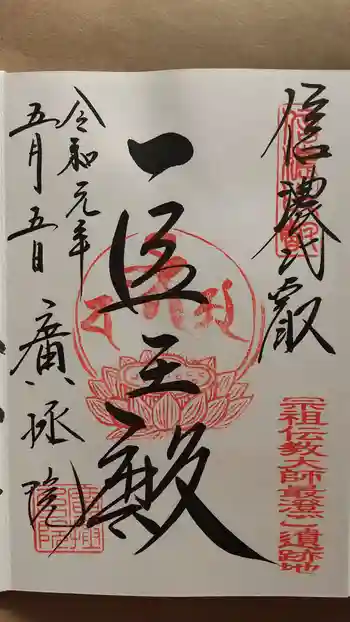 信濃比叡
宗祖伝教大師最澄「遺跡地
一医王殿
令和元年
五月五日
廣拯院